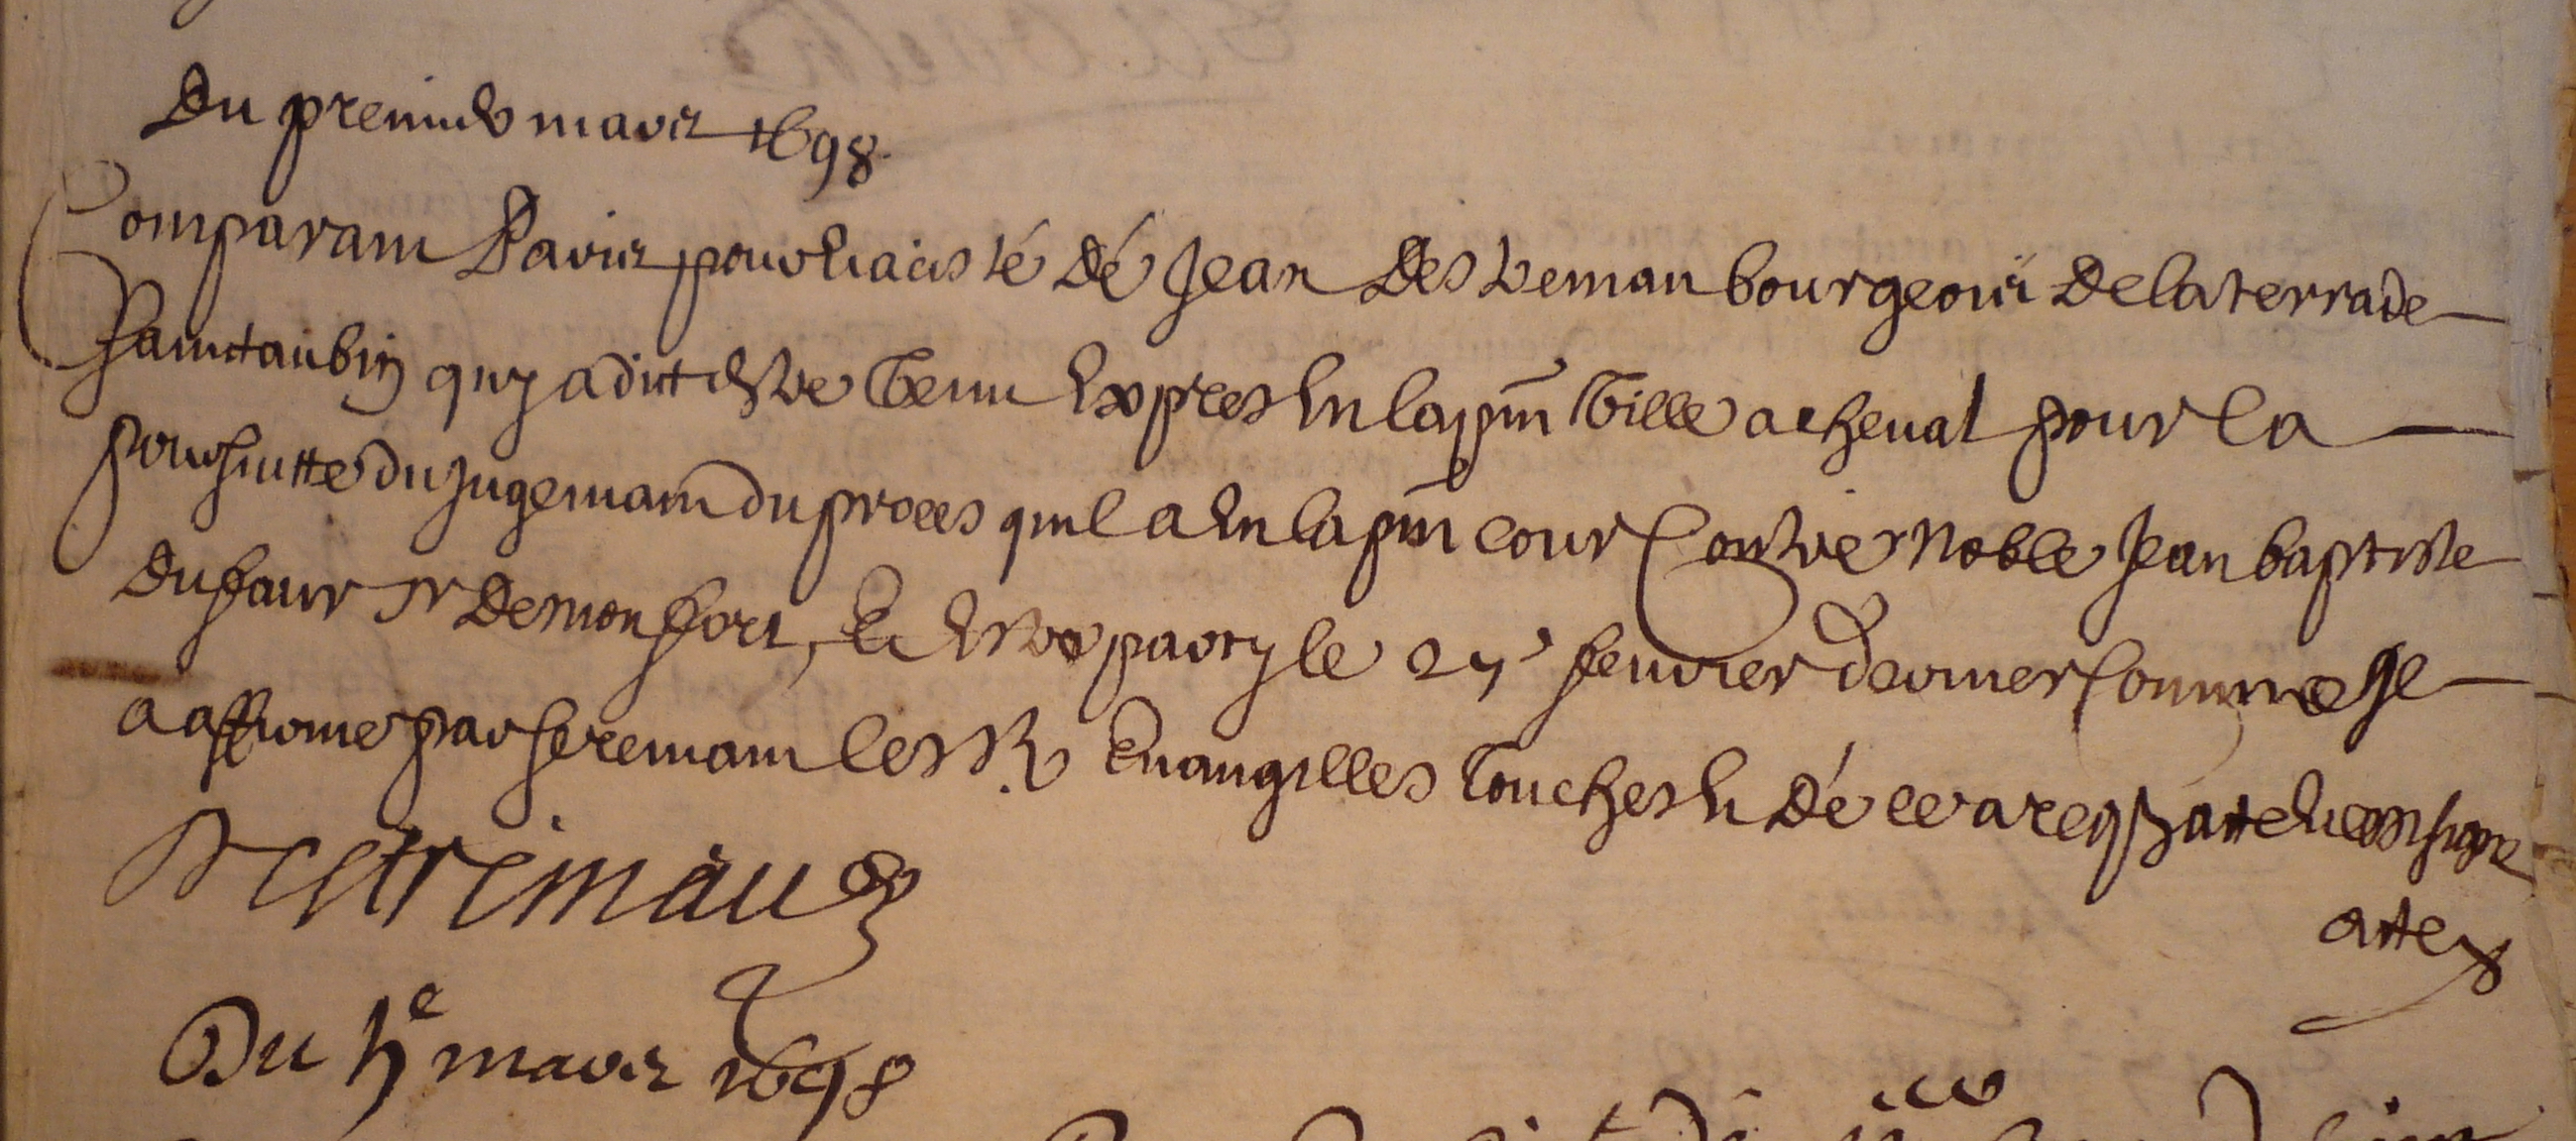 Du premier mars 1698
Comparant Paris pour et assisté dé Jean Destremau bourgeois de la terrade
Saint aubin quy a dict estre venu expres en la pnt ville a cheval pour la
poursuitte du jugemant du proces quil a en la pnt cour contre noble Jean baptiste
dufaur sr de monfort, et estre party le 27e feuvrier dernier comme Je
a affirme par seremant les sts Evangilles touches et dé ce a reqs atte et cest signe
Destremau
atte
Du 5e mars 1698